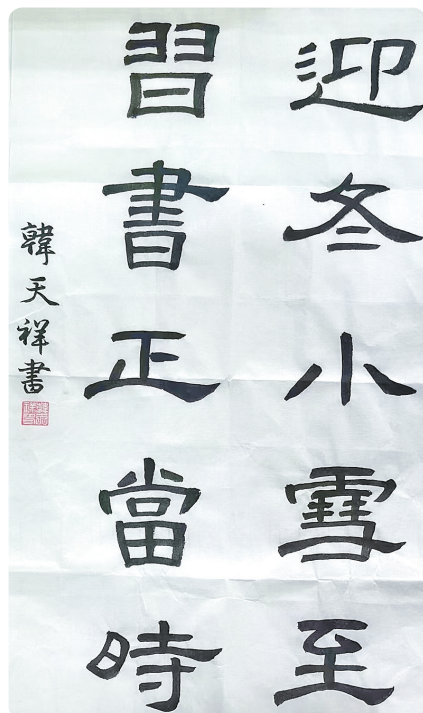 迎冬小雪至
習書正當時
韓天祥書